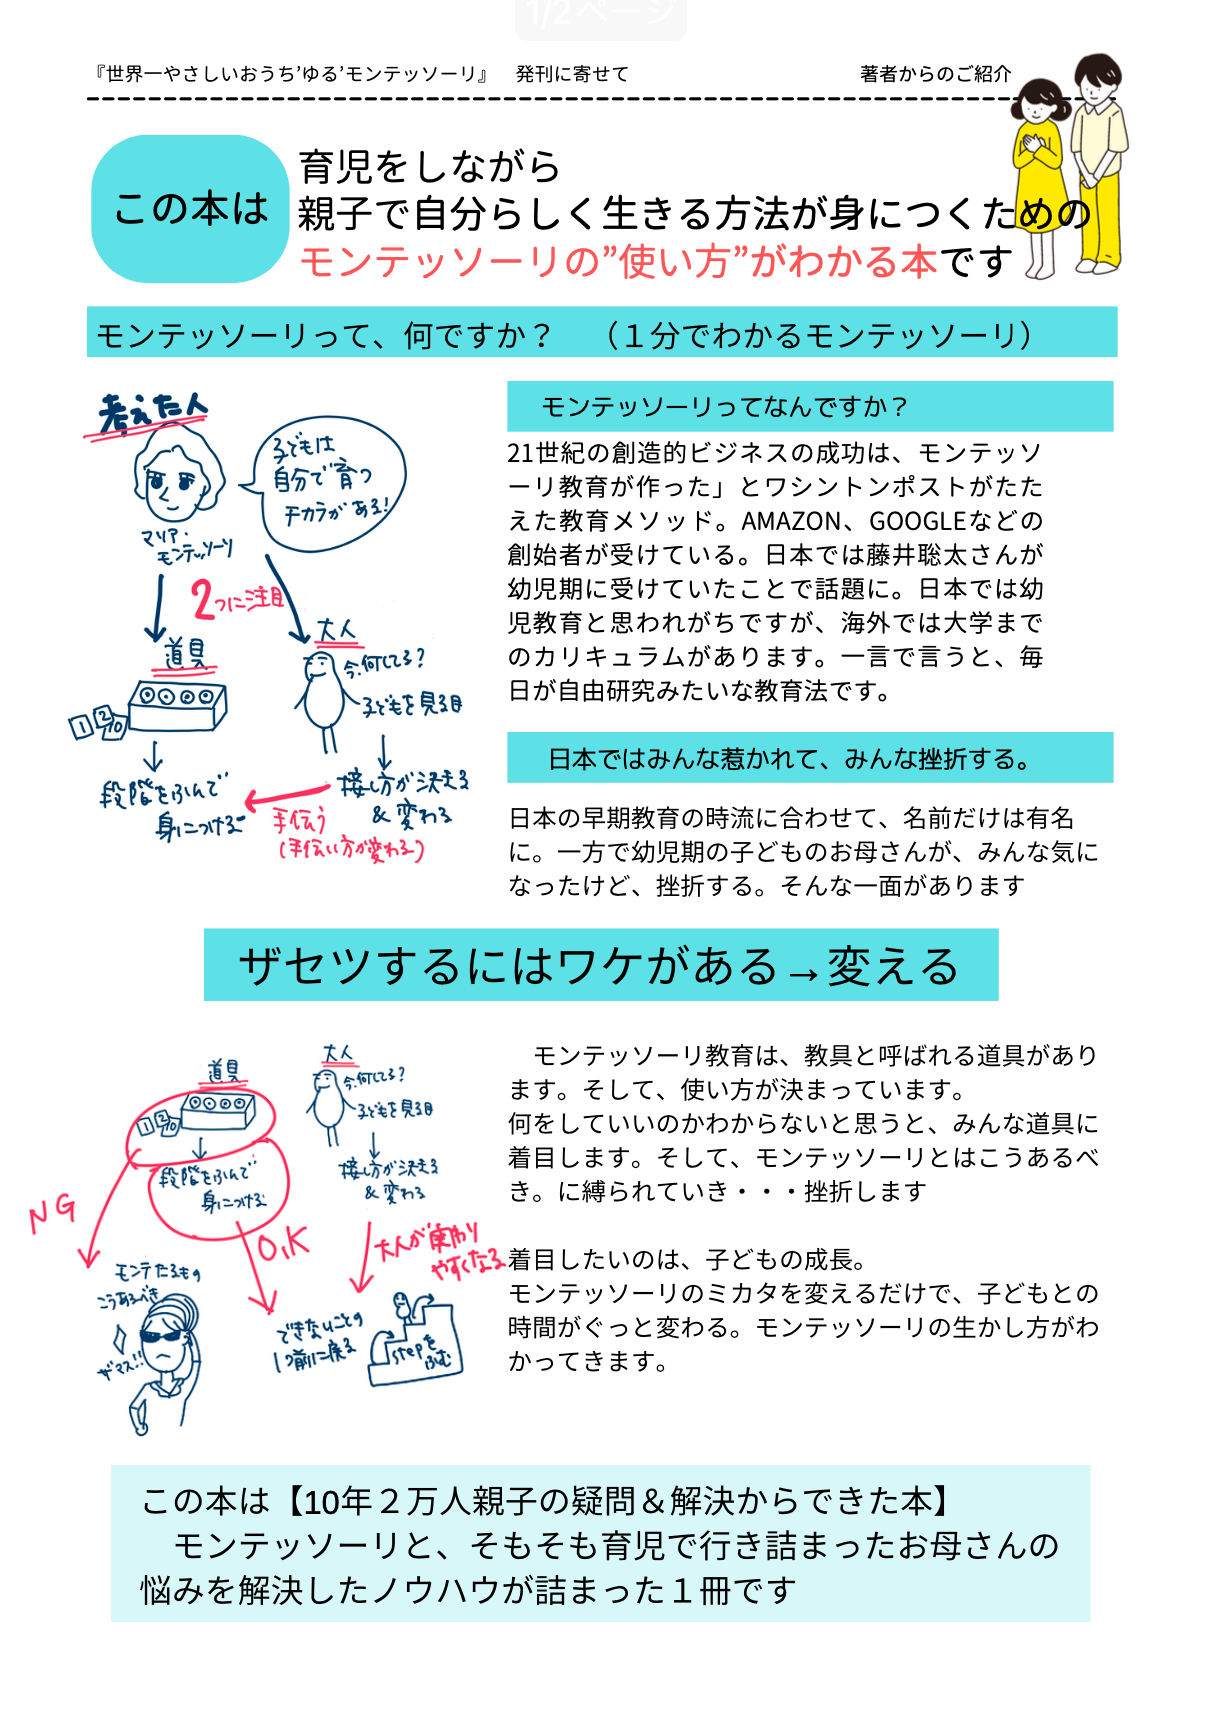 1/2ページ
『世界一やさしいおうち’ゆる’モンテッソーリ』　発刊に寄せて
著者からのご紹介
この本は
育児をしながら
親子で自分らしく生きる方法が身につくための
モンテッソーリの”使い方”がわかる本です
モンテッソーリって、何ですか？　（１分でわかるモンテッソーリ）
考えた人
子どもは
自分で育つ
チカラがある!
マリア・
モンテッソーリ
2つに注目
道具
大人
今何してる?
子どもを見る目
1 2 10
段階をふんで
身につける
接し方が決まる
& 変わる
手伝う
(手伝い方が変わる)
モンテッソーリってなんですか？
21世紀の創造的ビジネスの成功は、モンテッソ
ーリ教育が作った」とワシントンポストがたた
えた教育メソッド。AMAZON、GOOGLEなどの
創始者が受けている。日本では藤井聡太さんが
幼児期に受けていたことで話題に。日本では幼
児教育と思われがちですが、海外では大学まで
のカリキュラムがあります。一言で言うと、毎
日が自由研究みたいな教育法です。
日本ではみんな惹かれて、みんな挫折する。
日本の早期教育の時流に合わせて、名前だけは有名
に。一方で幼児期の子どものお母さんが、みんな気に
なったけど、挫折する。そんな一面があります
ザセツするにはワケがある→変える
道具
大人
今何してる?
子どもを見る目
1 2 10
段階をふんで
身につける
接し方が決まる
& 変わる
NG
O.K
大人が関わり
やすくなる
モンテたるもの
こうあるべき
ザマス!!
できないことの
1つ前に戻る
stepを
ふむ
　モンテッソーリ教育は、教具と呼ばれる道具があり
ます。そして、使い方が決まっています。
何をしていいのかわからないと思うと、みんな道具に
着目します。そして、モンテッソーリとはこうあるべ
き。に縛られていき・・・挫折します
着目したいのは、子どもの成長。
モンテッソーリのミカタを変えるだけで、子どもとの
時間がぐっと変わる。モンテッソーリの生かし方がわ
かってきます。
この本は【10年２万人親子の疑問＆解決からできた本】
　モンテッソーリと、そもそも育児で行き詰まったお母さんの
悩みを解決したノウハウが詰まった１冊です